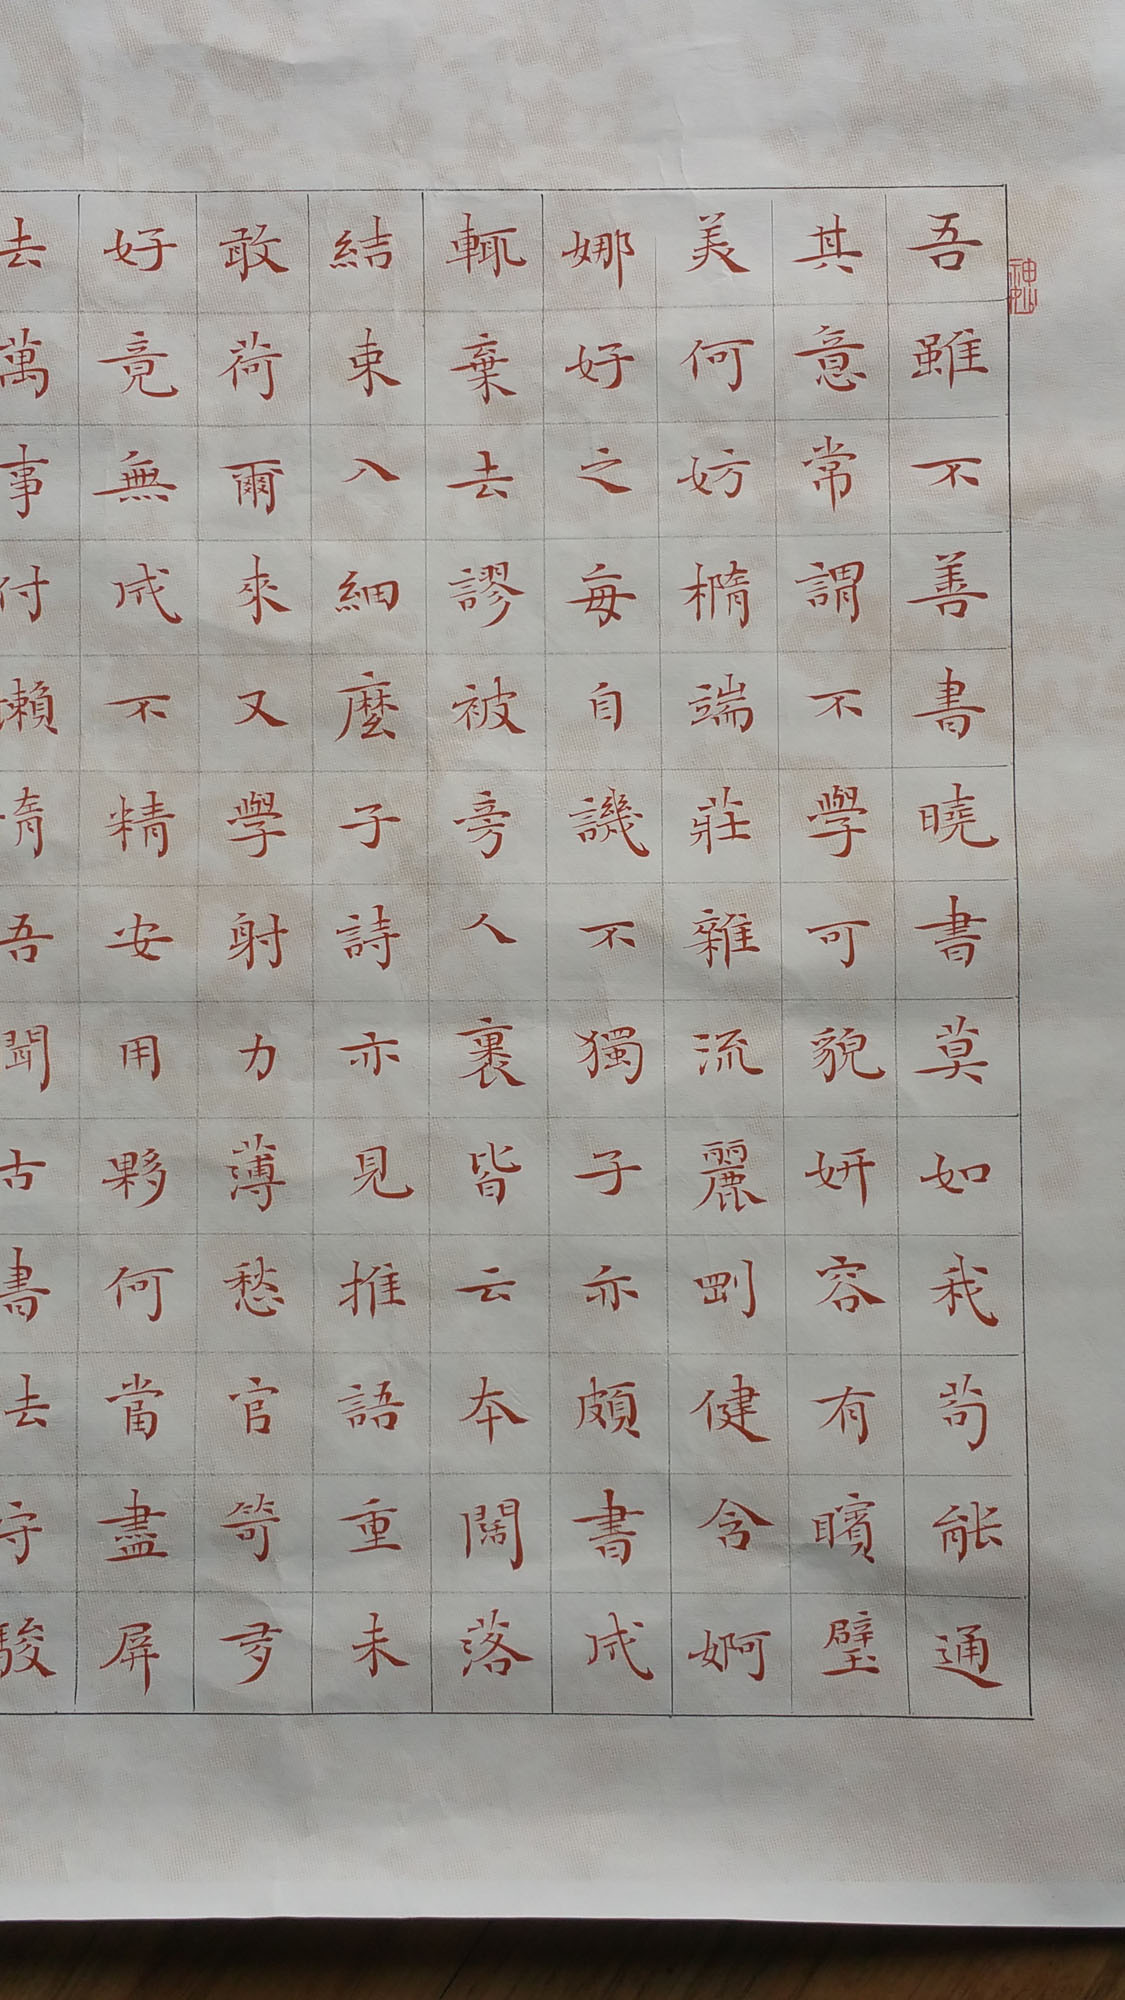 吾雖不善書曉書莫如我苟能通
其意常謂不學可貌妍容有矉璧
美何妨橢端莊雜流麗剛健含婀
娜好之每自譏不獨子亦頗書成
輒棄去謬被旁人裹皆云本闊落
結束入細麼子詩亦見推語重未
敢荷爾來又學射力薄愁官笴多
好竟無成不精安用夥何當盡屏
去萬事付懶惰吾聞古書去守駿